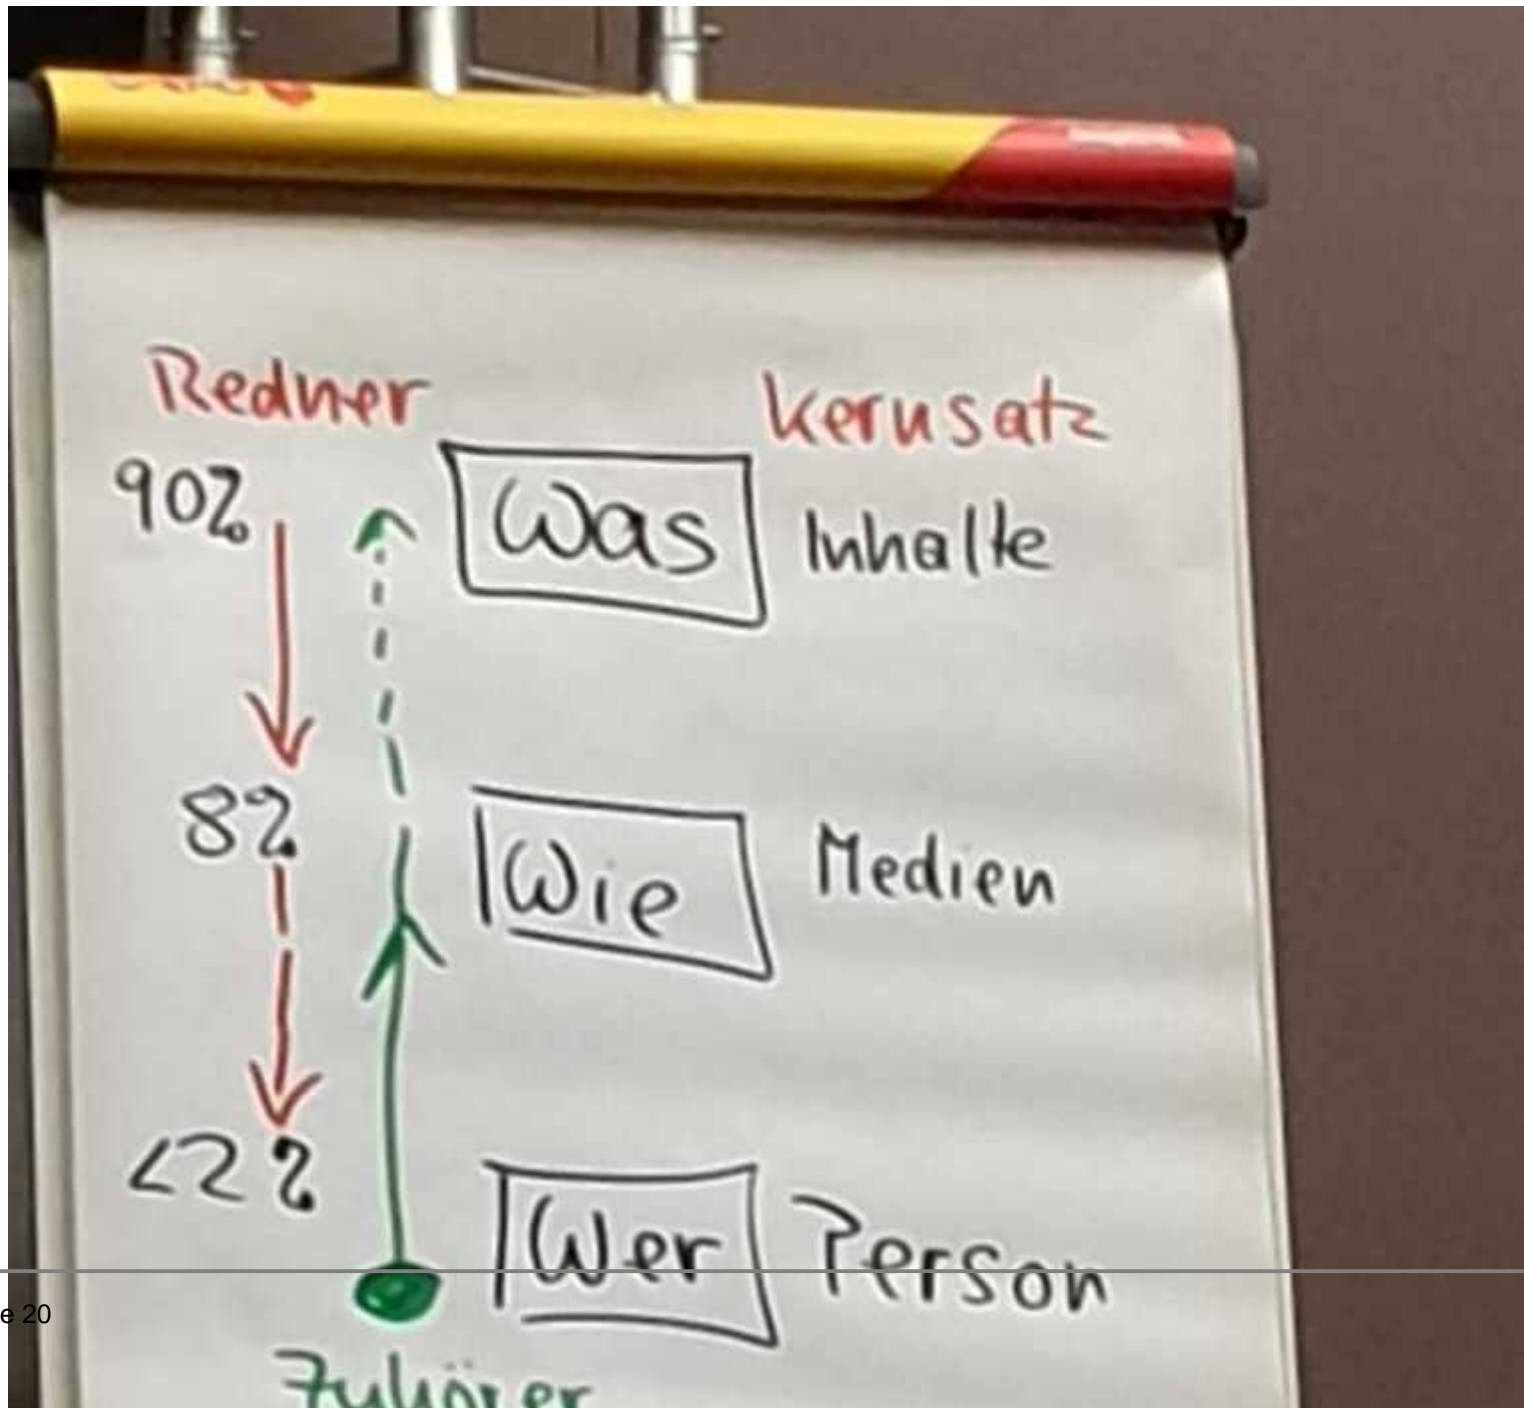 Redner Kernsatz
90% Was Inhalte
8% Wie Medien
<2% Wer Person
e 20
Zuhörer